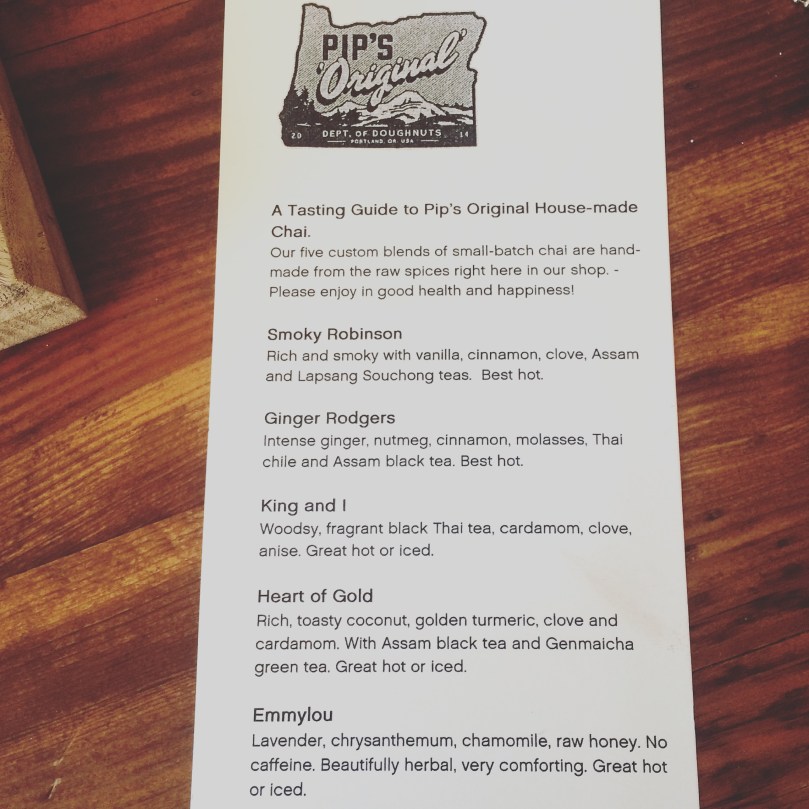 PIP'S
'Original'
20 DEPT. OF DOUGHNUTS 14
PORTLAND, OR USA
A Tasting Guide to Pip's Original House-made
Chai.
Our five custom blends of small-batch chai are hand-
made from the raw spices right here in our shop. -
Please enjoy in good health and happiness!
Smoky Robinson
Rich and smoky with vanilla, cinnamon, clove, Assam
and Lapsang Souchong teas. Best hot.
Ginger Rodgers
Intense ginger, nutmeg, cinnamon, molasses, Thai
chile and Assam black tea. Best hot.
King and I
Woodsy, fragrant black Thai tea, cardamom, clove,
anise. Great hot or iced.
Heart of Gold
Rich, toasty coconut, golden turmeric, clove and
cardamom. With Assam black tea and Genmaicha
green tea. Great hot or iced.
Emmylou
Lavender, chrysanthemum, chamomile, raw honey. No
caffeine. Beautifully herbal, very comforting. Great hot
or iced.